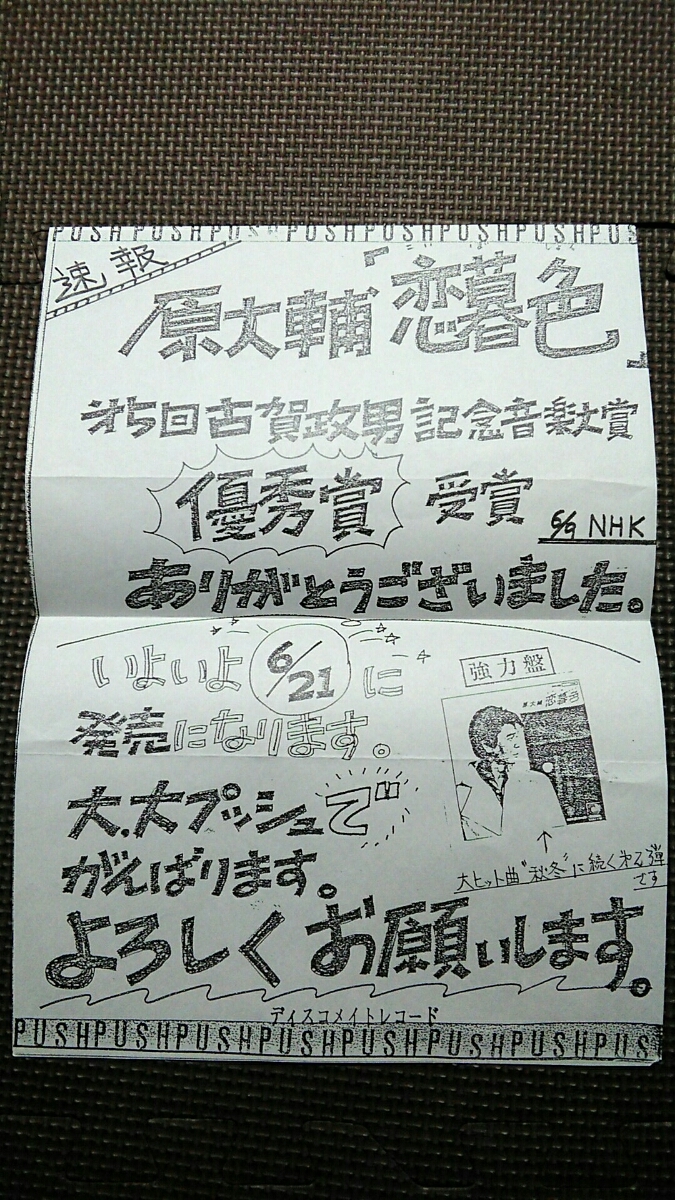 PUSHPUSHPUSHPUSHPUSHPUSHPUSHPUS
速報
原大輔「恋暮色」
オ5回古賀政男記念音楽大賞
優秀賞 受賞 6/9 NHK
ありがとうございました。
いよいよ 6/21 に
発売になります。
強力盤
原大輔 恋暮色
大.大プッシュで
がんばります。
大ヒット曲"秋冬"に続く 弾
です
よろしくお願いします。
ディスコメイトレコード
PUSHPUSHPUSHPUSHPUSHPUSHPUSHPUS